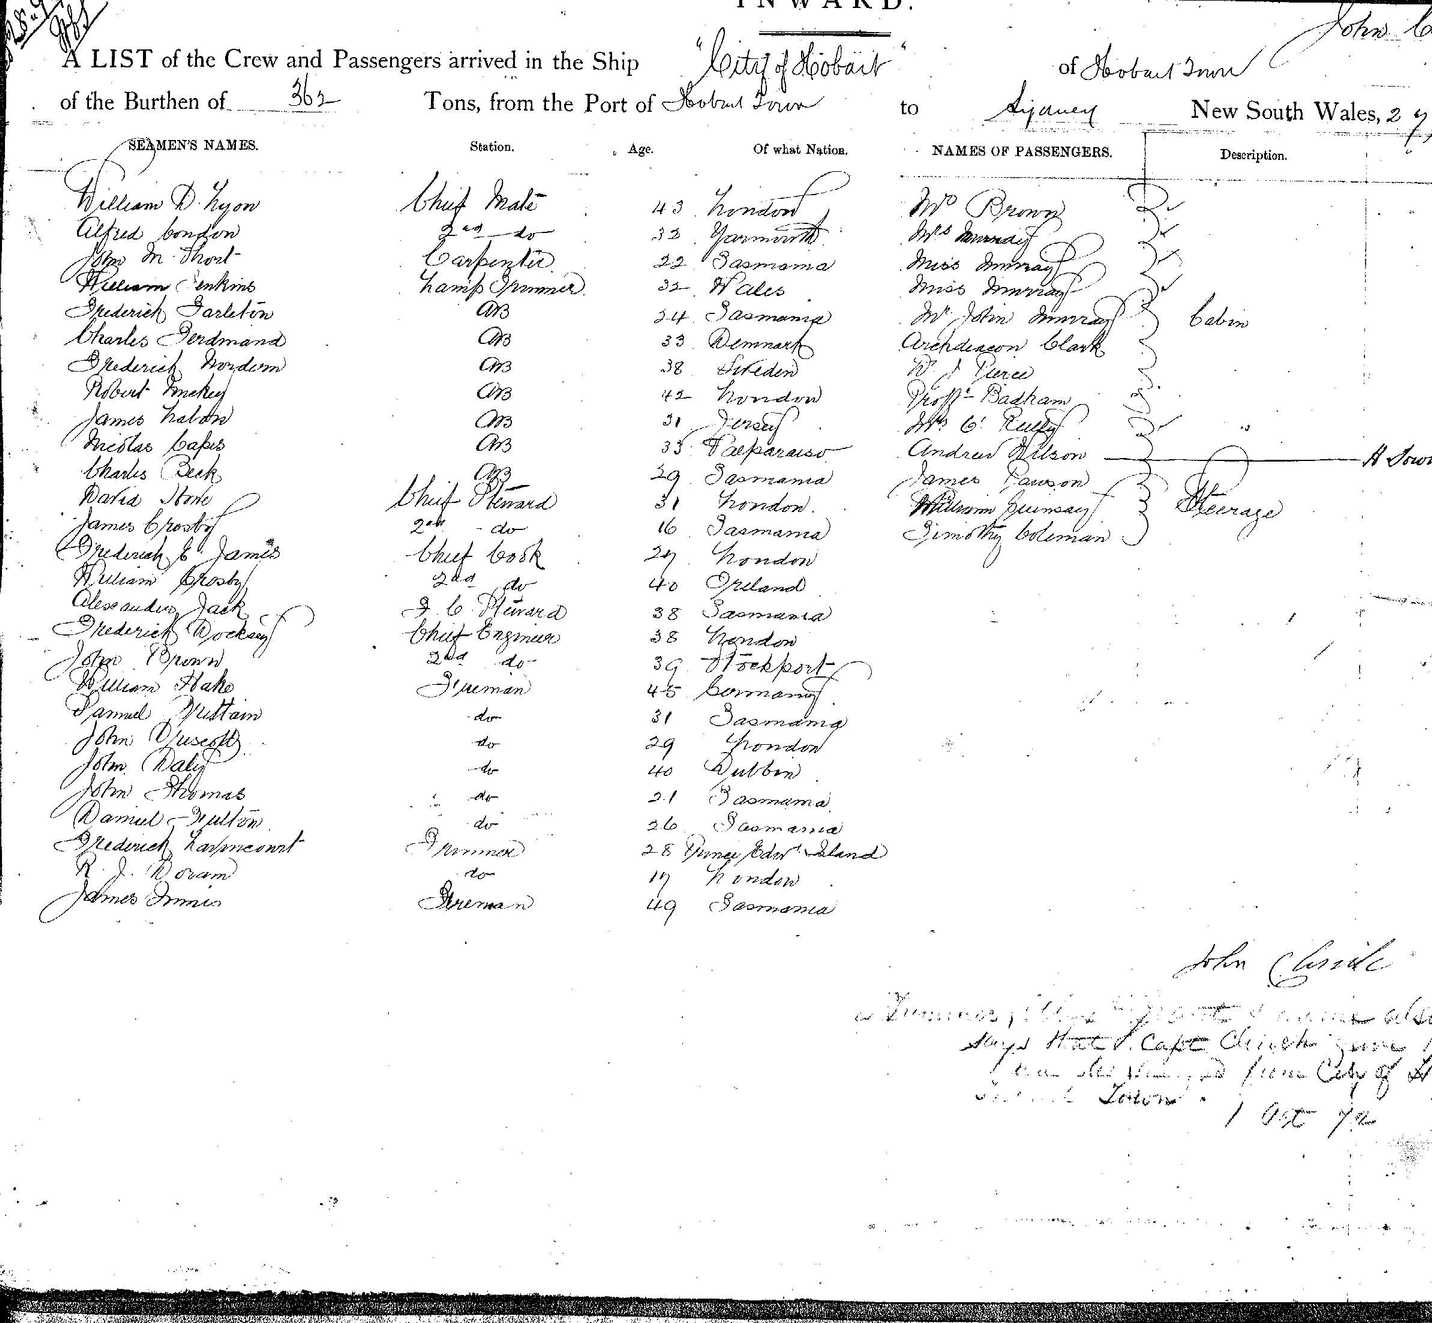 INWARD.
John C
A LIST of the Crew and Passengers arrived in the Ship "City of Hobart" of Hobart Town
of the Burthen of 362 Tons, from the Port of Hobart Town to Sydney New South Wales, 27
SEAMEN'S NAMES. Station. Age. Of what Nation. NAMES OF PASSENGERS. Description.
William D Lyon Chief Mate 43 London Mrs Brown
Alfred Condon 2nd do 32 Yarmouth Mrs Murray
John M Short Carpenter 22 Tasmania Miss Murray
William Jenkins Lamp Trimmer 32 Wales Miss Murray
Frederick Tarleton AB 24 Tasmania Mr John Murray Cabin
Charles Ferdinand AB 33 Denmark Archdeacon Clark
Frederick AB 38 Sweden Pierce
Robert AB 42 London Profr Badham
James AB 31 Jersey Mrs
Nicolas AB 33 Valparaiso Andrew Wilson H Town
Charles Beck AB 29 Tasmania James Pawson
David Stone Chief Steward 31 London William Steerage
James Crosby 2nd do 16 Tasmania Timothy Coleman
Frederick E James Chief Cook 27 London
William Crosby 2nd do 40 Ireland
Alexander Jack F. C. Steward 38 Tasmania
Frederick Docksey Chief Engineer 38 London
John Brown 2nd do 39 Stockport
William Hake Fireman 45 Germany
Samuel Brittain do 31 Tasmania
John Driscoll do 29 London
John Daly do 40 Dublin
John Thomas do 21 Tasmania
Daniel Fulton do 26 Tasmania
Frederick Trimmer 28 Prince Edwd Island
R. J. Doram do 17 London
James Innis Fireman 49 Tasmania
John Clinch
also
says that Capt Clinch
from City of H
Town
1 Oct 72